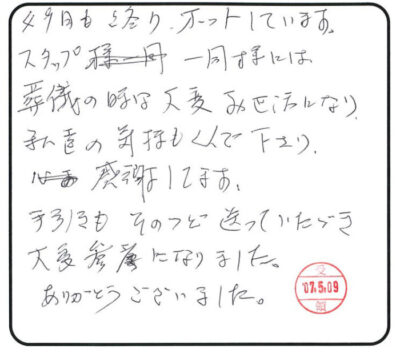 49日も終り、ホットしています。
スタッフ様一同 一同様には
葬儀の時は大変お世話になり
私達の気持もくんで下さり、
感謝してます。
手引きもそのつど送っていただき
大変参考になりました。
ありがとうございました。
受
'07.5.09
領